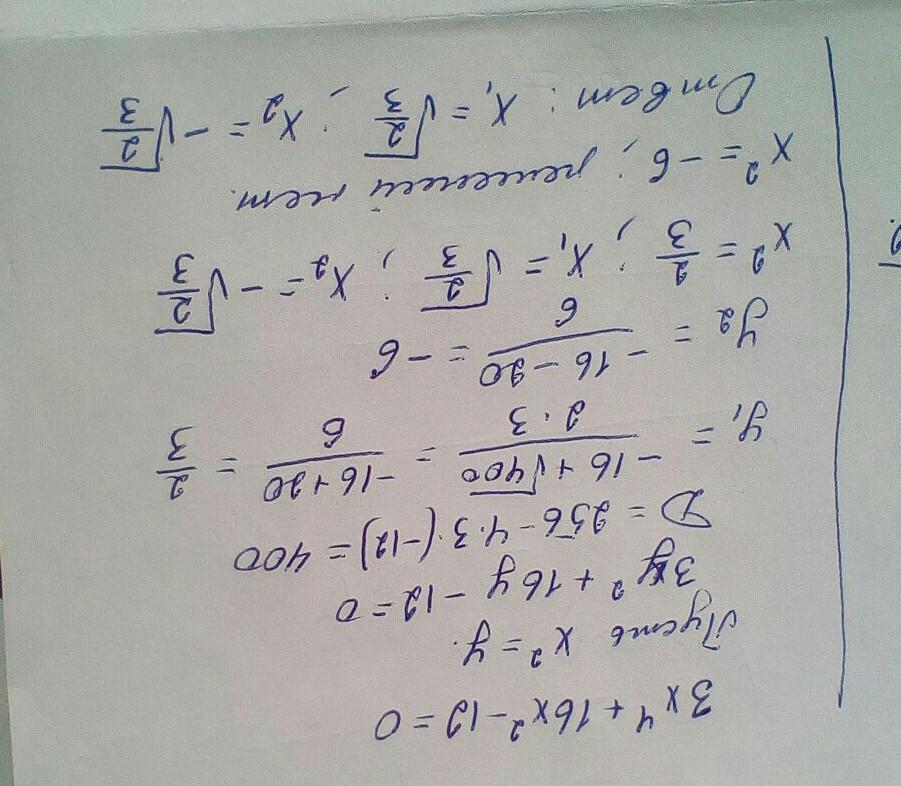 3x⁴ + 16x² - 12 = 0
Пусть x² = y.
3y² + 16y - 12 = 0
D = 256 - 4·3·(-12) = 400
y₁ = (-16 + √400)/(2·3) = (-16 + 20)/6 = 2/3
y₂ = (-16 - 20)/6 = -6
x² = 2/3; x₁ = √(2/3); x₂ = -√(2/3)
x² = -6; решений нет.
Ответ: x₁ = √(2/3); x₂ = -√(2/3)